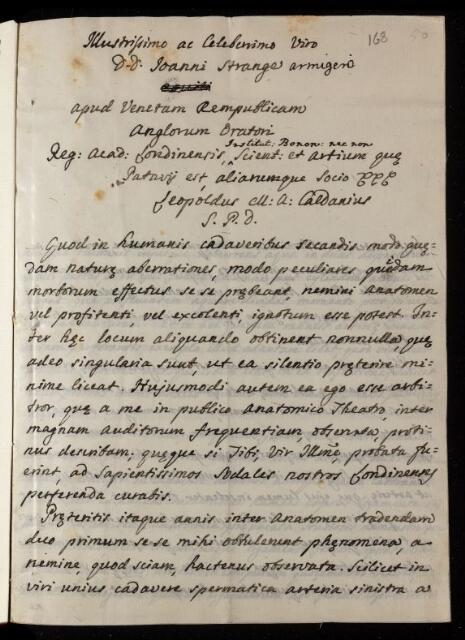 168
50
Illustrissimo ac Celeberimo Viro
D. D. Joanni Strange armigero
apud Venetam Rempublicam
Anglorum Oratori
Institut: Bonon: nec non
Reg: Acad: Londinensis, Scient: et Artium quę
Patavij est, aliarumque Socio
Leopoldus M: A: Caldanius
S. P. D.
Quod in humanis cadaveribus secandis modo quę=
dam naturę aberrationes, modo peculiares quidam
morborum effectus se se prębeant, nemini Anatomen
vel profitenti, vel excolenti, ignotum esse potest. In=
ter hęc locum aliquando obtinent nonnulla quę
adeo singularia sunt, ut ea silentio pręterire mi=
nime liceat. Hujusmodi autem ea ego esse arbi=
tror, quę a me in publico Anatomico Theatro, inter
magnam auditorum frequentiam, observata, proti=
nus describam; quęque si Tibi, Vir Illmẽ, probata fu=
erint, ad Sapientissimos Sodales nostros Londinenses
perferenda curabis.
Pręteritis itaque annis inter Anatomen tradendam
duo primum se se mihi obtulerunt phęnomena, a
nemine, quod sciam, hactenus observata. Scilicet in
viri unius cadavere spermatica arteria sinistra a